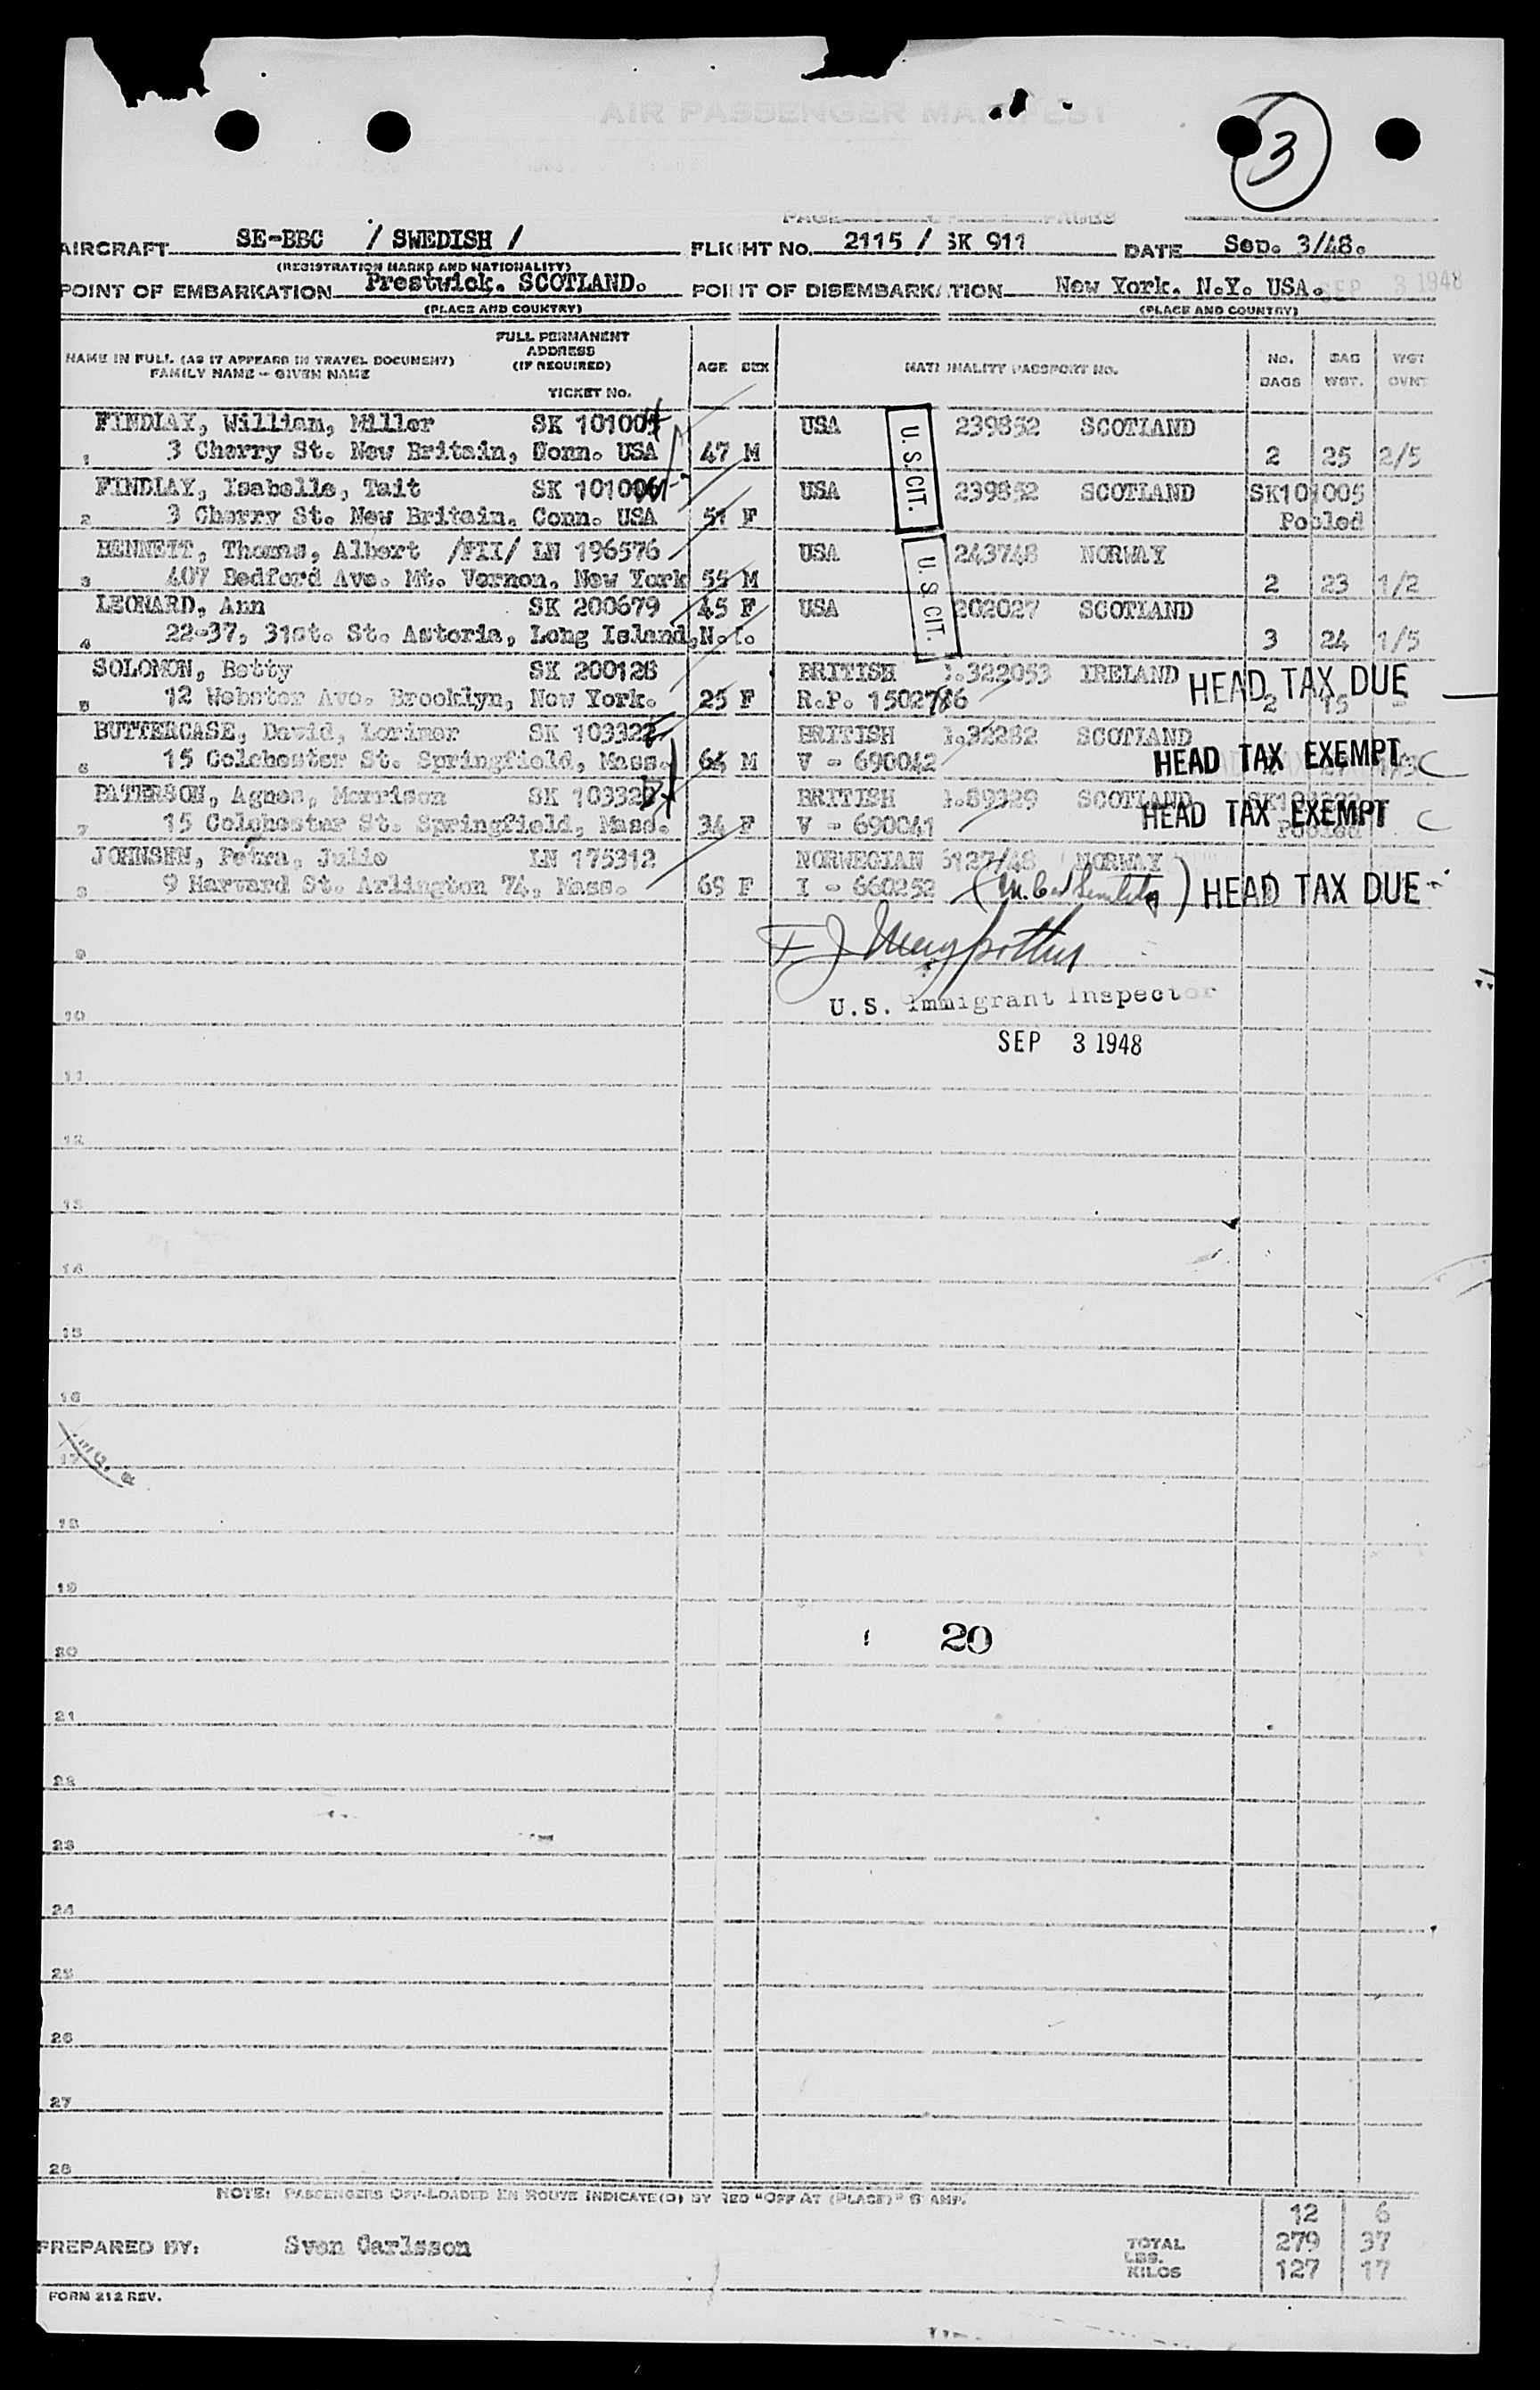 AIR PASSENGER MANIFEST
3
PAGE OF PAGES
AIRCRAFT SE-BBC / SWEDISH / FLIGHT No. 2115 / SK 911 DATE Sep. 3/48.
(REGISTRATION MARKS AND NATIONALITY)
POINT OF EMBARKATION Prestwick. SCOTLAND. POINT OF DISEMBARKATION New York. N.Y. USA. SEP 3 1948
(PLACE AND COUNTRY) (PLACE AND COUNTRY)
NAME IN FULL (AS IT APPEARS IN TRAVEL DOCUMENT)
FAMILY NAME - GIVEN NAME
FULL PERMANENT
ADDRESS
(IF REQUIRED)
TICKET No.
AGE SEX NATIONALITY PASSPORT NO. No. BAGS BAG WGT. WGT OVNT
FINDLAY, William, Miller SK 101005 USA 239852 SCOTLAND
1 3 Cherry St. New Britain, Conn. USA 47 M 2 25 2/5
U.S.CIT.
FINDLAY, Isabelle, Tait SK 101006 USA 239852 SCOTLAND SK101005
2 3 Cherry St. New Britain. Conn. USA 51 F Pooled
BENNETT, Thomas, Albert /FII/ LN 196576 USA 243748 NORWAY
3 407 Bedford Ave. Mt. Vernon, New York 55 M 2 23 1/2
U.S.CIT.
LEONARD, Ann SK 200679 45 F USA 202027 SCOTLAND
4 22-37, 31st. St. Astoria, Long Island, N.Y. 3 24 1/5
SOLOMON, Betty SK 200128 BRITISH 322053 IRELAND
5 12 Webster Ave. Brooklyn, New York. 25 F R.P. 1502786 2 15 -
HEAD TAX DUE
BUTTERCASE, David, Lorimer SK 103322 BRITISH SCOTLAND
6 15 Colchester St. Springfield, Mass. 64 M V - 690042
HEAD TAX EXEMPT C
PATERSON, Agnes, Morrison BRITISH 89329 SCOTLAND
7 15 Colchester St. Springfield, Mass. 34 F V - 690041 Pooled
HEAD TAX EXEMPT C
JOHNSEN, Petra, Julie LN 175312 NORWEGIAN 6127/48 NORWAY
8 9 Harvard St. Arlington 74, Mass. 69 F I - 660252
HEAD TAX DUE
9
U.S. Immigrant Inspector
10
SEP 3 1948
11
12
13
14
15
16
17
18
19
20
20
21
22
23
24
25
26
27
28
NOTE: PASSENGERS OFF-LOADED EN ROUTE INDICATE(D) BY RED "OFF AT (PLACE)" STAMP.
12 6
PREPARED BY: Sven Carlsson TOTAL 279 37
LBS.
KILOS 127 17
FORM 212 REV.